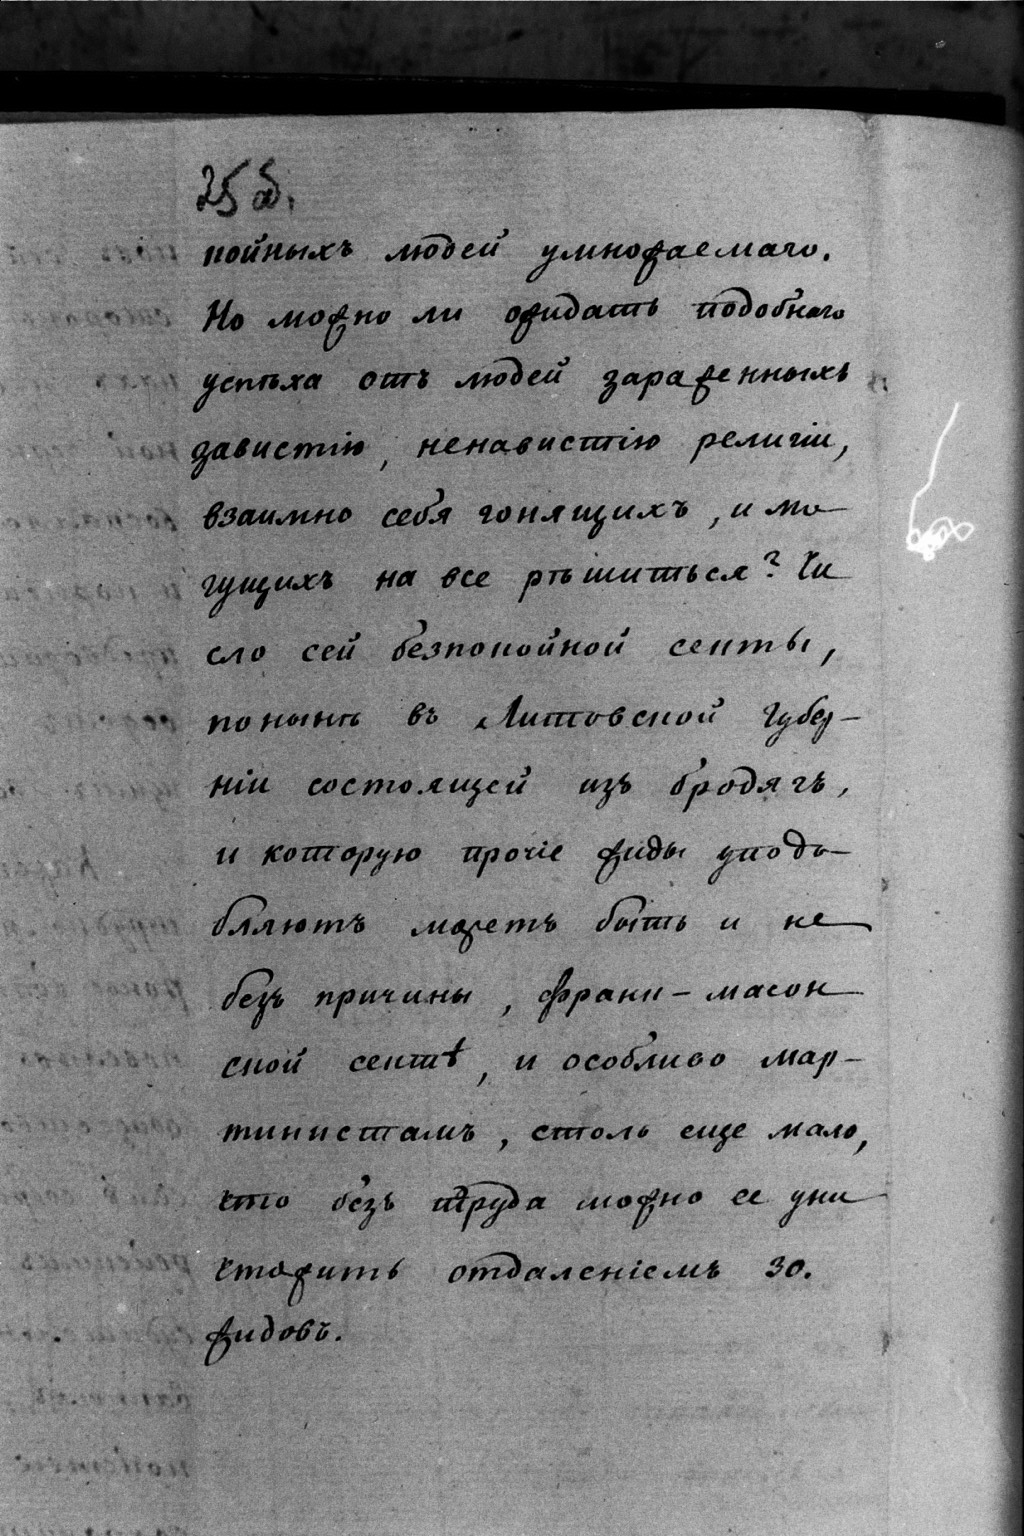 25 б.
койныхъ людей умножаемаго.
Но можно ли ожидать подобнаго
успѣха отъ людей зараженныхъ
завистію, ненавистію религіи,
взаимно себя гонящихъ, и мо-
гущихъ на все рѣшиться? Чи
сло сей безпокойной секты,
понынѣ въ Литовской Губер-
ніи состоящей изъ бродягъ,
и которую прочіе жиды уподо-
бляютъ можетъ быть и не
безъ причины, франк-масон
ской сектѣ, и особливо мар-
тинистамъ, столь еще мало,
что безъ труда можно ее уни
чтожить отдаленіемъ 30.
жидовъ.